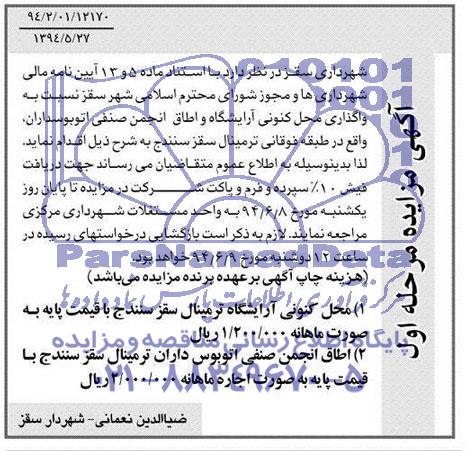 ۹۴/۲/۰۱/۱۲۱۷۰
۱۳۹۴/۵/۲۷
آگهی مزایده مرحله اول
شهرداری سقز در نظر دارد با استناد ماده ۵ و ۱۳ آیین نامه مالی
شهرداری ها و مجوز شورای محترم اسلامی شهر سقز نسبت به
واگذاری محل کنونی آرایشگاه و اطاق انجمن صنفی اتوبوسداران،
واقع در طبقه فوقانی ترمینال سقز سنندج به شرح ذیل اقدام نماید.
لذا بدینوسیله به اطلاع عموم متقاضیان می رساند جهت دریافت
فیش ۱۰٪ سپرده و فرم و پاکت شرکت در مزایده تا پایان روز
یکشنبه مورخ ۹۴/۶/۸ به واحد مستغلات شهرداری مرکزی
مراجعه نمایند. لازم به ذکر است بازگشایی درخواستهای رسیده در
ساعت ۱۲ دوشنبه مورخ ۹۴/۶/۹ خواهد بود.
(هزینه چاپ آگهی بر عهده برنده مزایده می‌باشد)
۱) محل کنونی آرایشگاه ترمینال سقز سنندج با قیمت پایه به
صورت ماهانه ۱/۲۰۰/۰۰۰ ریال
۲) اطاق انجمن صنفی اتوبوس داران ترمینال سقز سنندج با
قیمت پایه به صورت اجاره ماهانه ۲/۰۰۰/۰۰۰ ریال
ضیاالدین نعمانی - شهردار سقز
ParsNamadData
پایگاه اطلاع رسانی مناقصه و مزایده
۰۲۱-۸۸۳۴۹۶۷۰-۵